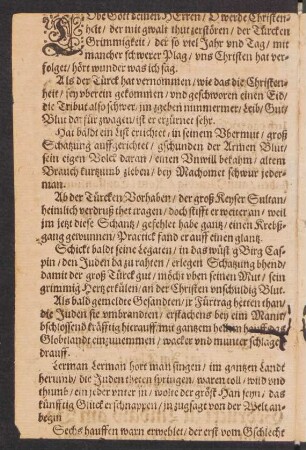 LObe Gott deinen HErren / O werde Christen-
heit / der mit gwalt thut zerstören / der Türcken
Grimmigkeit / der so viel Jahr vnd Tag / mit
mancher schwerer Plag / vns Christen hat ver-
folget / hört wunder was ich sag.
Als der Türck hat vernommen / wie das die Christen-
heit / sey vberein gekommen / vnd gschworen einen Eid /
die Tribut also schwer / im zgeben nimmermer / Leib / Gut /
Blut dar für zwagen / ist er erzürnet sehr.
Hat bald ein List erdichtet / in seinem Vbermut / groß
Schatzung auff gerichtet / gschunden der Armen Blut /
sein eigen Volck daran / einen Vnwill bekahm / altem
Brauch kurtzumb gieben / bey Machomet schwur jeder-
man.
Ab der Türcken Vorhaben / der groß Keyser Sultan /
heimlich verdruß thet tragen / doch stifft er weiter an / weil
im jetz diese Schantz / gefehlet habe gantz / einen Krebß-
gang gewunnen / Practick fand er auff einen glantz.
Schickt bald seine Legaten / in das wüst gBirg Cas-
pin / den Juden da zu rahten / erlegen Schatzung bhend
damit der groß Türck gut / möcht vben seinen Mut / sein
grimmig Hertz erkülen / an der Christen vnschuldig Blut.
Als bald gemeldte Gesandten / jr Fürtrag hetten than /
die Juden sie vmbrandten / erstachens bey eim Mann /
bschlossend kräfftig hierauff / mit gantzem hellen hauff / das
Globtlandt einzunemmen / wacker vnd munter schlagen
drauff.
Lerman Lerman hort man singen / im gantzen Landt
herumb / die Juden theten springen / waren toll / wild vnd
thumb / ein jeder vnter in / wolte der gröst Han seyn / das
künfftig Glück erschnappen / in zugsagt von der Welt an-
begin
Sechs hauffen warn erwehlet / der erst vom Gschlecht